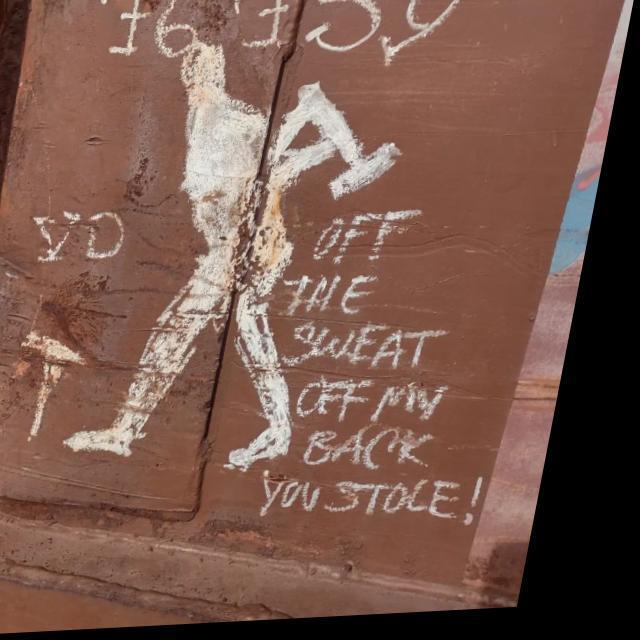 OFF
THE
SWEAT
OFF MY
BACK
YOU STOLE!